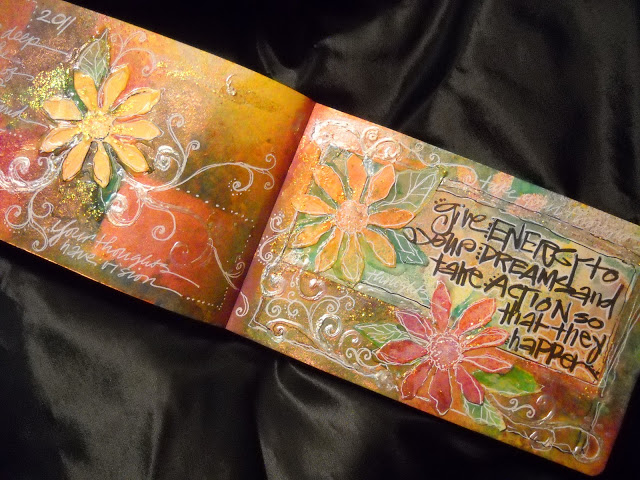 2011
deep
Your thoughts
have Wism
give ENERGY to
your DREAMS and
take ACTION so
that they
happen